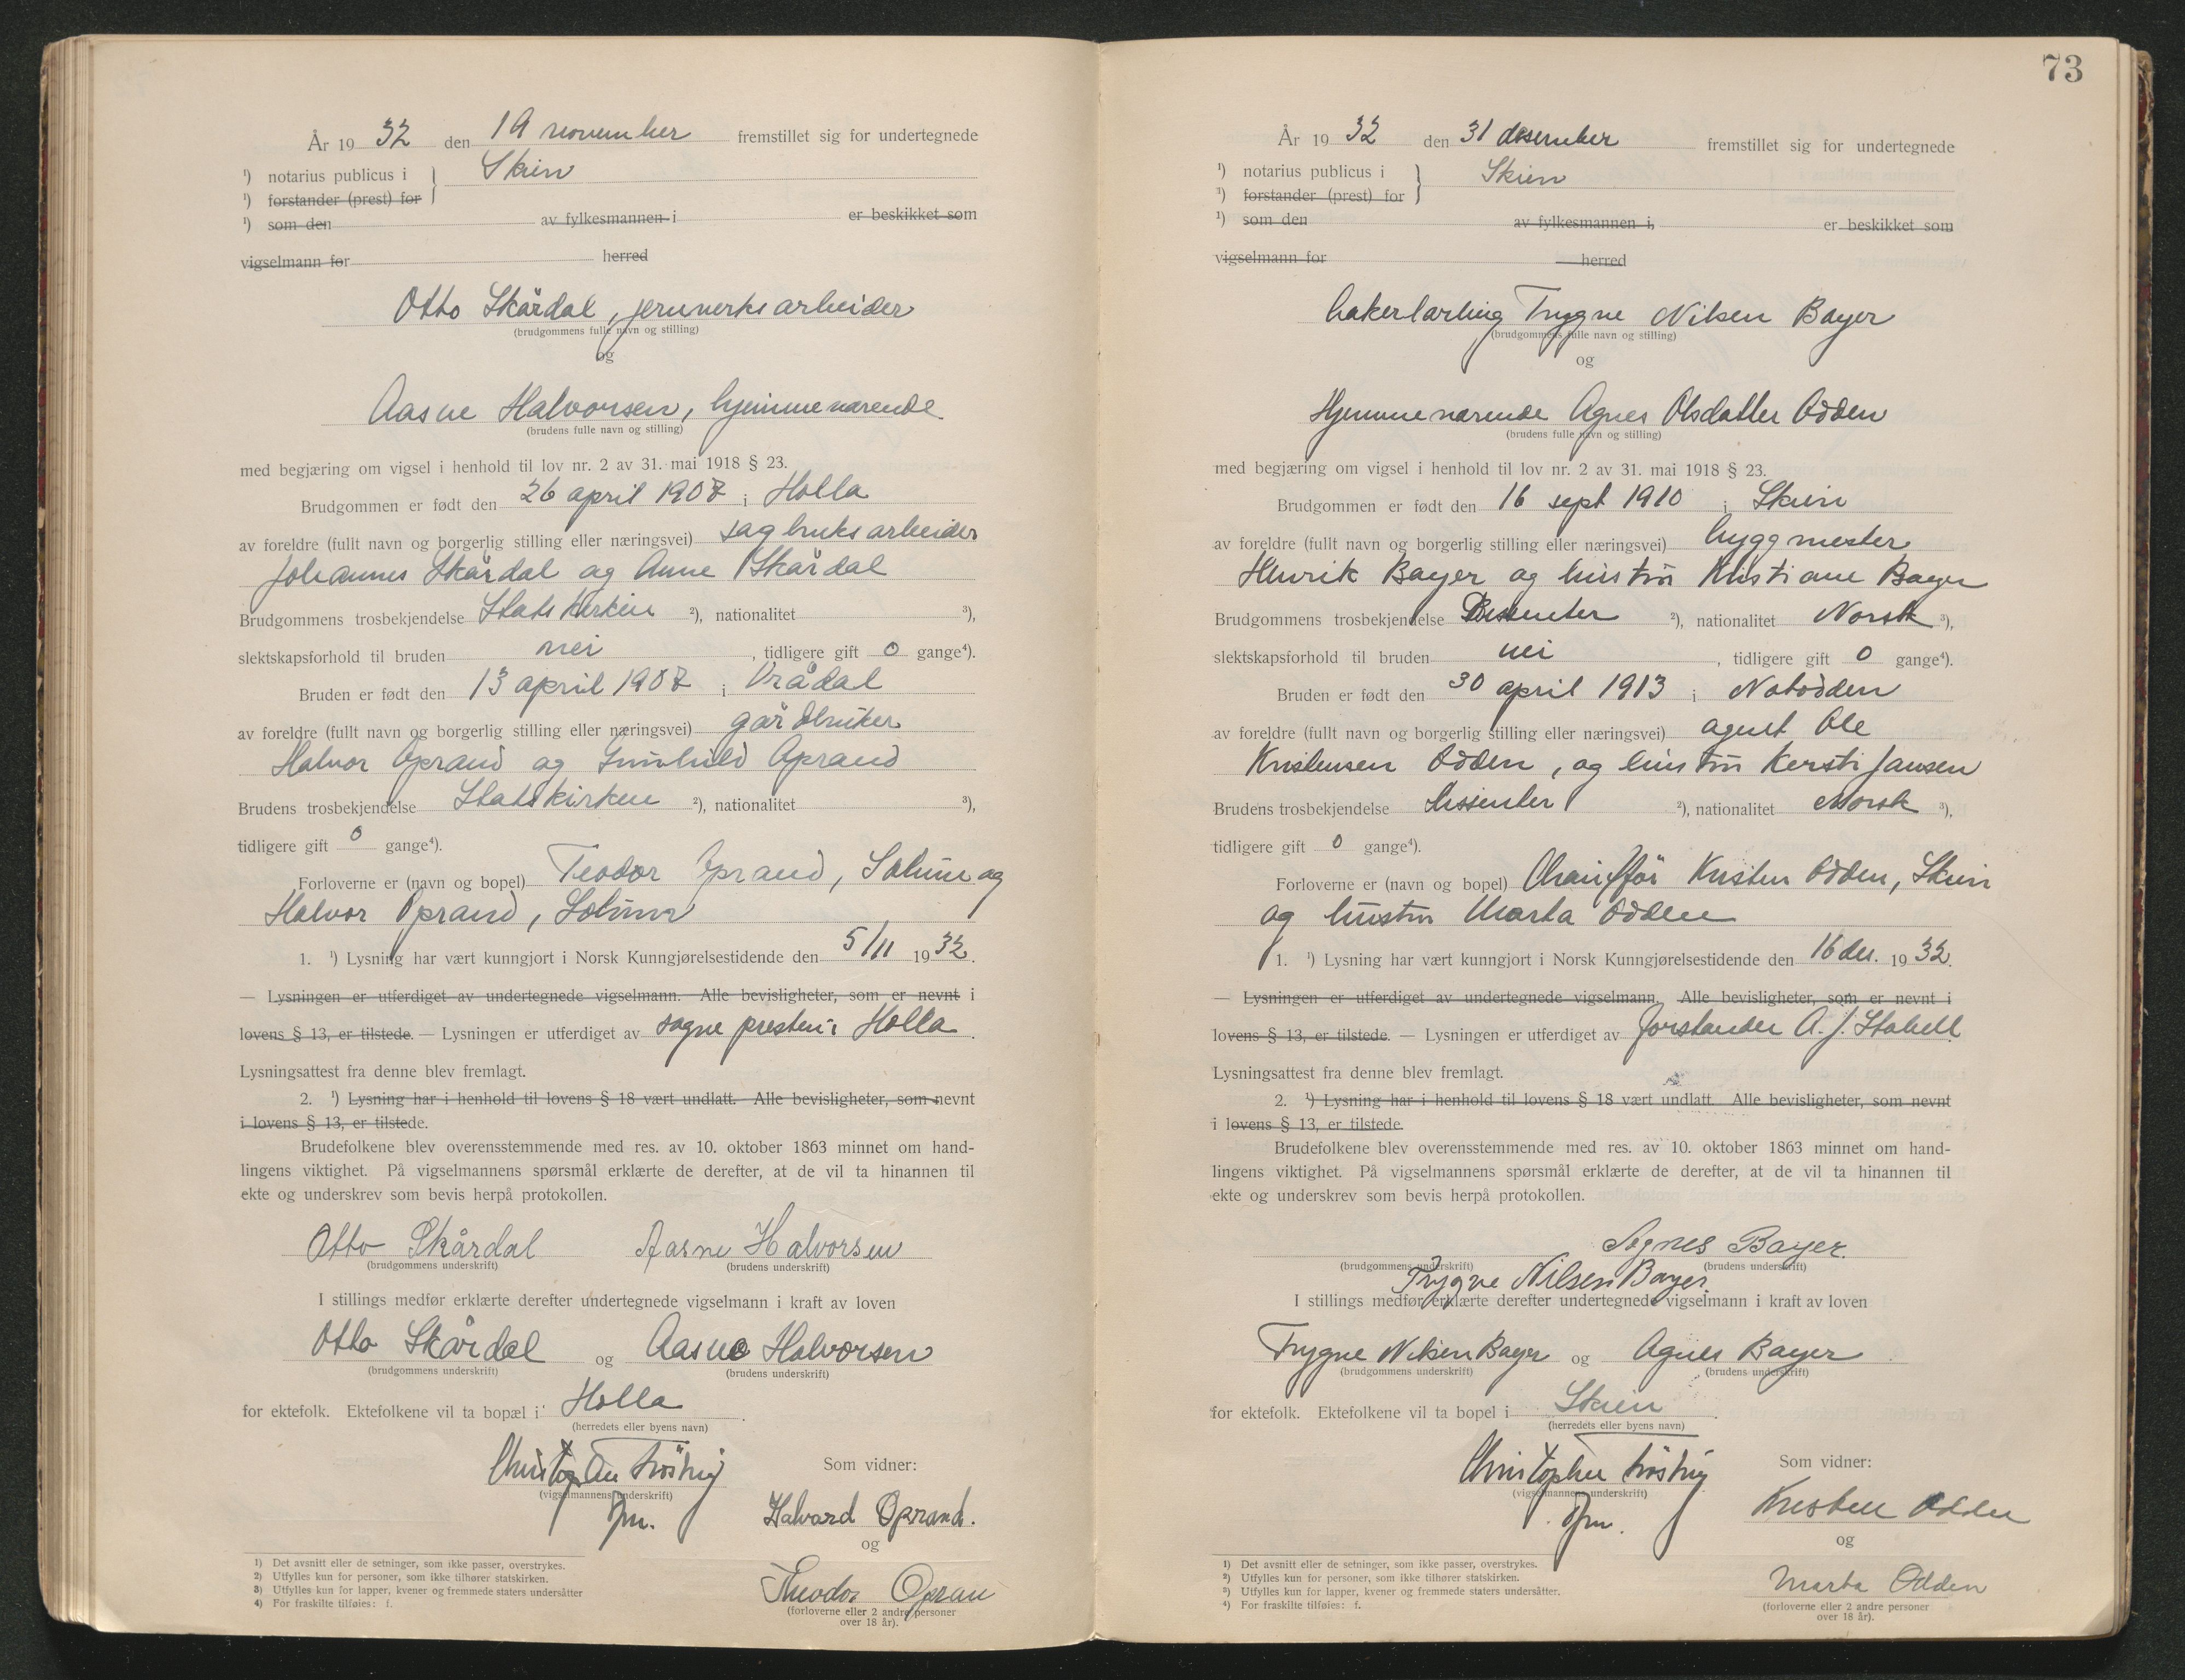 År 19 32 den 19 november fremstillet sig for undertegnede
¹) notarius publicus i } Skien
¹) forstander (prest) for
¹) som den av fylkesmannen i er beskikket som
vigselmann for herred
Otto Skårdal, jernverksarbeider
(brudgommens fulle navn og stilling)
og
Aasne Halvorsen, hjemmeværende.
(brudens fulle navn og stilling)
med begjæring om vigsel i henhold til lov nr. 2 av 31. mai 1918 § 23.
Brudgommen er født den 26 april 1908 i Holla
av foreldre (fullt navn og borgerlig stilling eller næringsvei) sagbruksarbeider
Johannes Skårdal og Anne Skårdal
Brudgommens trosbekjendelse Statskirken ²), nationalitet ³),
slektskapsforhold til bruden nei, tidligere gift 0 gange⁴).
Bruden er født den 13 april 1908 i Vrådal
av foreldre (fullt navn og borgerlig stilling eller næringsvei) gårdbruker
Halvor Oprand og Gunhild Oprand
Brudens trosbekjendelse Statskirken ²), nationalitet ³),
tidligere gift 0 gange⁴).
Forloverne er (navn og bopel) Teodor Oprand, Solum og
Halvor Oprand, Solum
1. ¹) Lysning har vært kunngjort i Norsk Kunngjørelsestidende den 5/11 19 32.
— Lysningen er utferdiget av undertegnede vigselmann. Alle bevisligheter, som er nevnt i
lovens § 13, er tilstede. — Lysningen er utferdiget av sognepresten i Holla.
Lysningsattest fra denne blev fremlagt.
2. ¹) Lysning har i henhold til lovens § 18 vært undlatt. Alle bevisligheter, som nevnt
i lovens § 13, er tilstede.
Brudefolkene blev overensstemmende med res. av 10. oktober 1863 minnet om hand-
lingens viktighet. På vigselmannens spørsmål erklærte de derefter, at de vil ta hinannen til
ekte og underskrev som bevis herpå protokollen.
Otto Skårdal Aasne Halvorsen
(brudgommens underskrift) (brudens underskrift)
I stillings medfør erklærte derefter undertegnede vigselmann i kraft av loven
Otto Skårdal og Aasne Halvorsen
(brudgommens underskrift) (brudens underskrift)
for ektefolk. Ektefolkene vil ta bopæl i Holla.
(herredets eller byens navn)
Som vidner:
(vigselmannens underskrift)
Halvard Oprand.
og
Theodor Opran
(forloverne eller 2 andre personer
over 18 år).
1) Det avsnitt eller de setninger, som ikke passer, overstrykes.
2) Utfylles kun for personer, som ikke tilhører statskirken.
3) Utfylles kun for lapper, kvener og fremmede staters undersåtter
4) For fraskilte tilføies: f.
73
År 19 32 den 31 desember fremstillet sig for undertegnede
¹) notarius publicus i } Skien
¹) forstander (prest) for
¹) som den av fylkesmannen i, er beskikket som
vigselmann for herred
bakerlærling Trygve Nilsen Bayer
(brudgommens fulle navn og stilling)
og
Hjemmeværende Agnes Olsdatter Odden
(brudens fulle navn og stilling)
med begjæring om vigsel i henhold til lov nr. 2 av 31. mai 1918 § 23.
Brudgommen er født den 16 sept 1910 i Skien
av foreldre (fullt navn og borgerlig stilling eller næringsvei) byggmester
Henrik Bayer og hustru Kristiane Bayer
Brudgommens trosbekjendelse Dissenter ²), nationalitet Norsk ³),
slektskapsforhold til bruden nei, tidligere gift 0 gange⁴).
Bruden er født den 30 april 1913 i Notodden
av foreldre (fullt navn og borgerlig stilling eller næringsvei) agent Ole
Kristensen Odden, og hustru Kersti Jansen
Brudens trosbekjendelse Dissenter ²), nationalitet Norsk ³),
tidligere gift 0 gange⁴).
Forloverne er (navn og bopel) Chauffør Kristen Odden, Skien
og hustru Marta Odden
1. ¹) Lysning har vært kunngjort i Norsk Kunngjørelsestidende den 16 des. 19 32.
— Lysningen er utferdiget av undertegnede vigselmann. Alle bevisligheter, som er nevnt i
lovens § 13, er tilstede. — Lysningen er utferdiget av forstander A. J. Stabell.
Lysningsattest fra denne blev fremlagt.
2. ¹) Lysning har i henhold til lovens § 18 vært undlatt. Alle bevisligheter, som nevnt
i lovens § 13, er tilstede.
Brudefolkene blev overensstemmende med res. av 10. oktober 1863 minnet om hand-
lingens viktighet. På vigselmannens spørsmål erklærte de derefter, at de vil ta hinannen til
ekte og underskrev som bevis herpå protokollen.
Agnes Bayer.
(brudgommens underskrift) (brudens underskrift)
Trygve Nilsen Bayer.
I stillings medfør erklærte derefter undertegnede vigselmann i kraft av loven
Trygve Nilsen Bayer og Agnes Bayer
(brudgommens underskrift) (brudens underskrift)
for ektefolk. Ektefolkene vil ta bopel i Skien.
(herredets eller byens navn)
Christopher Som vidner:
(vigselmannens underskrift)
Kristen Odden
og
Marta Odden
(forloverne eller 2 andre personer
over 18 år).
1) Det avsnitt eller de setninger, som ikke passer, overstrykes.
2) Utfylles kun for personer, som ikke tilhører statskirken.
3) Utfylles kun for lapper, kvener og fremmede staters undersåtter.
4) For fraskilte tilføies: f.